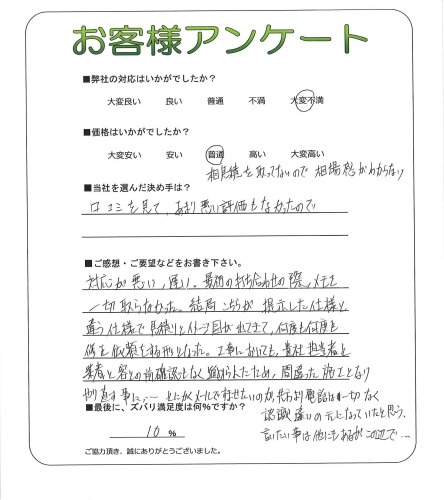 お客様アンケート
■弊社の対応はいかがでしたか？
大変良い　良い　普通　不満　大変不満
■価格はいかがでしたか？
大変安い　安い　普通　高い　大変高い
相見積を取ってないので相場感がわからない
■当社を選んだ決め手は？
口コミを見て、あまり悪い評価もなかったので
■ご感想・ご要望などをお書き下さい。
対応が悪い、遅い。最初の打ち合わせの際、メモを
一切取らなかった。結局こちらが提示した仕様と
違う仕様で見積りとイメージ図がでてきて、何度も何度も
修正を依頼をする形となった。工事においても、貴社担当者と
業者と客との三者確認もなく進められたため、間違った施工となり
やり直す事に… とにかくメールで済ませたいのか、先方より電話は一切なく
認識違いの元になっていたと思う。
言いたい事は他にもあるがこの辺で…
■最後に、ズバリ満足度は何%ですか？
10 %
ご協力頂き、誠にありがとうございました。